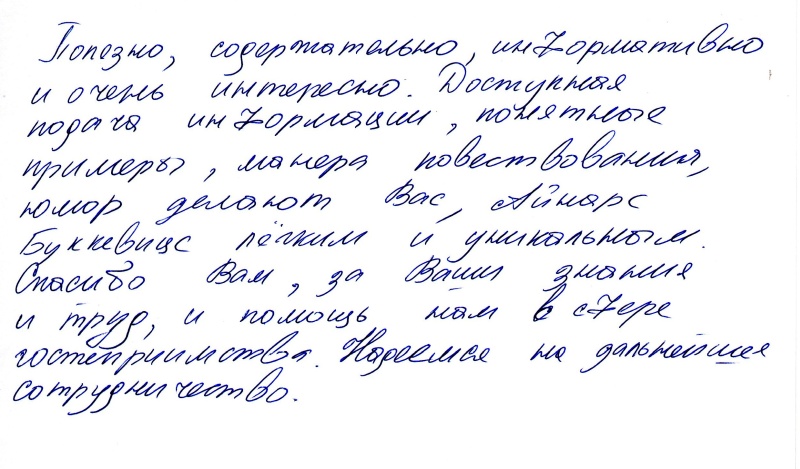 Полезно, содержательно, информативно
и очень интересно. Доступная
подача информации, понятные
примеры, манера повествования,
юмор делают Вас, Айнарс
Буккевицс лёгким и уникальным.
Спасибо Вам, за Ваши знания
и труд, и помощь нам в сфере
гостеприимства. Надеемся на дальнейшее
сотрудничество.